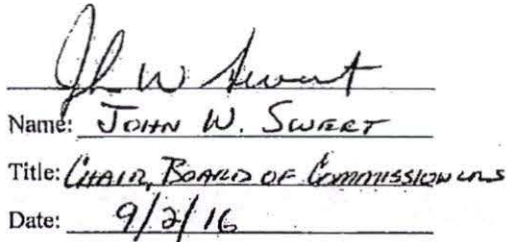 John W Swert
Name: JOHN W. SWERT
Title: CHAIR, BOARD OF COMMISSIONERS
Date: 9/2/16